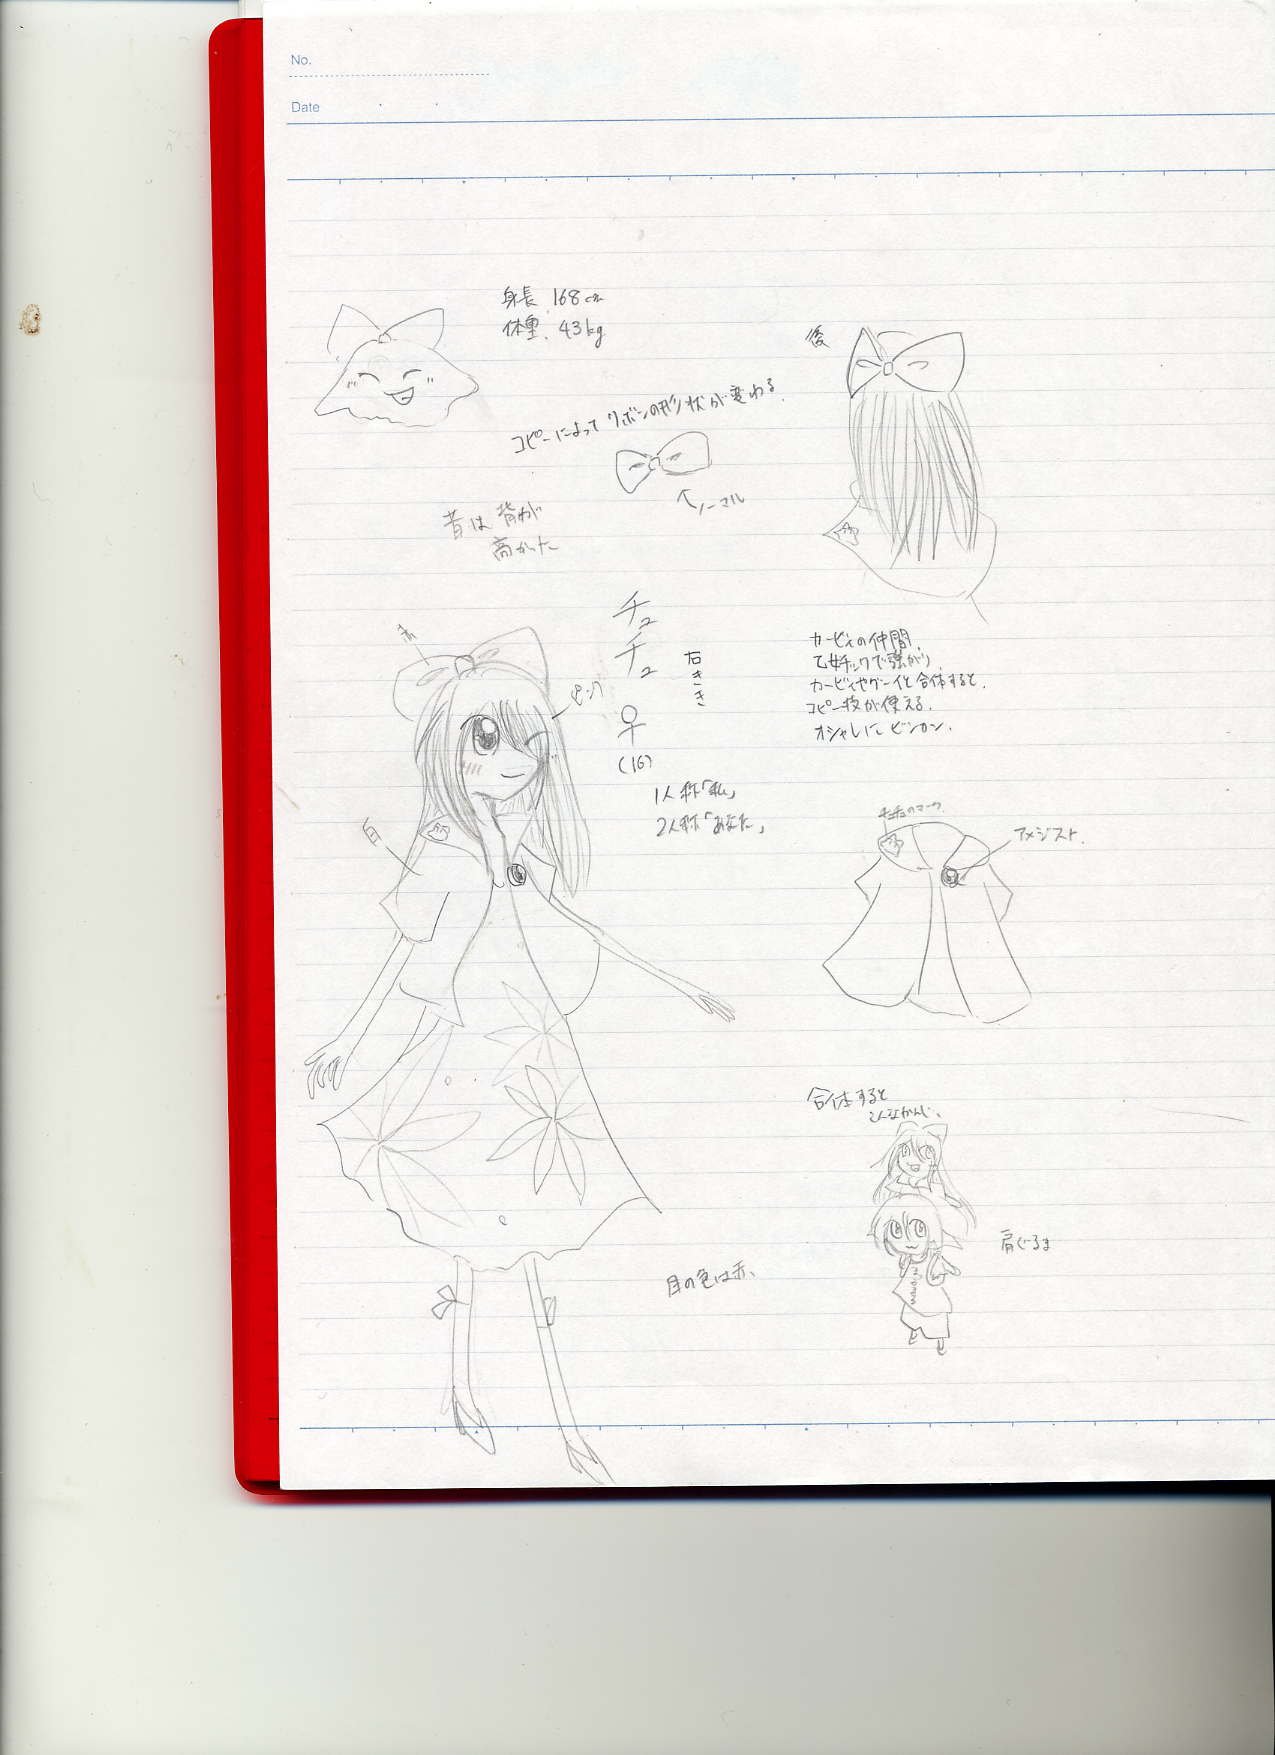 No.
Date
身長 168cm
体重. 43kg
後
コピーによって リボンの形状が変わる.
ノーマル
昔は背が
高かった
チュチュ
♀
(16)
右きき
赤
ピンク
白
1人称「私」
2人称「あなた」
カービィの仲間.
乙女チックで強がり.
カービィやグーイと合体すると.
コピー技が使える.
オシャレにビンカン.
チュチュのマーク.
アメジスト.
合体すると
こんなかんじ.
肩ぐるま
目の色は赤.